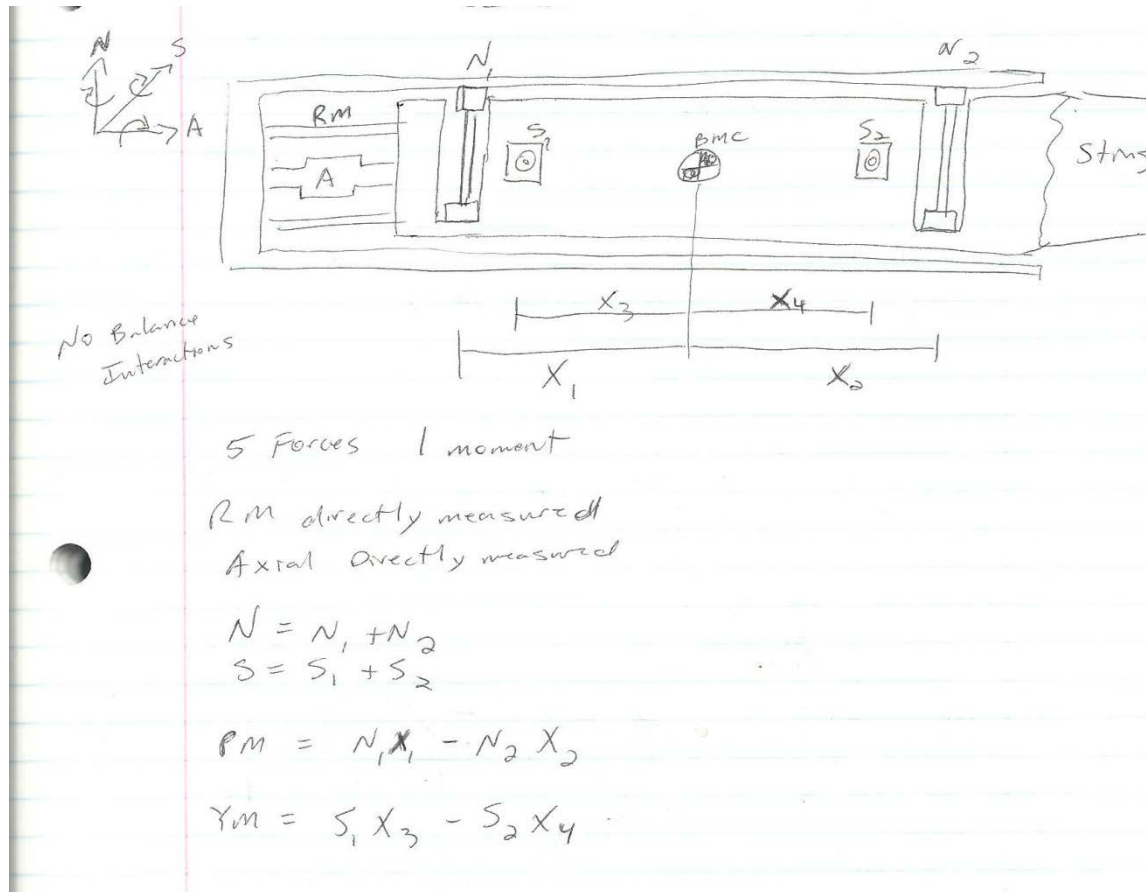 N
S
A
N₁
N₂
RM
A
S₁
BMC
S₂
X₃
X₄
X₁
X₂
No Balance
Interactions
5 Forces 1 moment
RM directly measured
Axial Directly measured
N = N₁ + N₂
S = S₁ + S₂
PM = N₁X₁ - N₂X₂
YM = S₁X₃ - S₂X₄